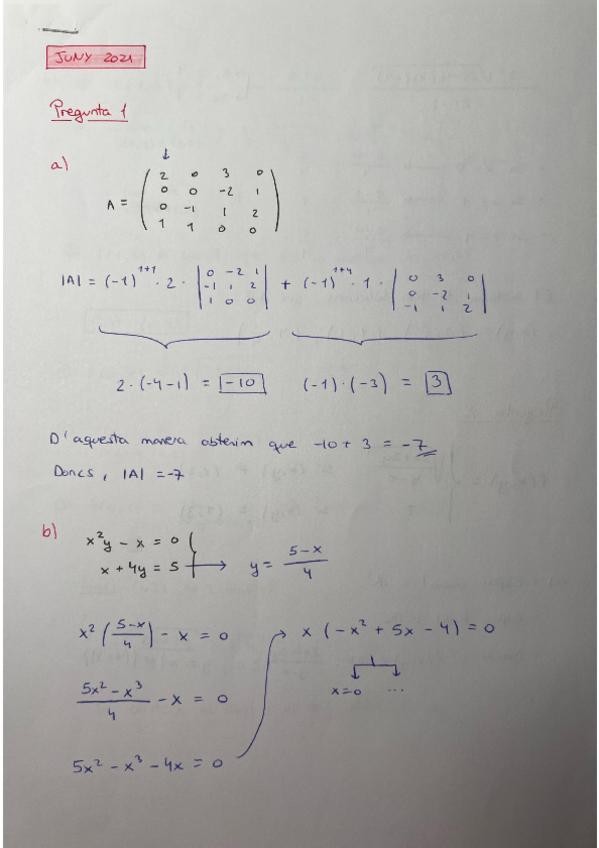 JUNY 2021
Pregunta 1
a)
A = ( 2 0 3 0
0 0 -2 1
0 -1 1 2
1 1 0 0 )
|A| = (-1)^{1+1} · 2 · | 0 -2 1 | + (-1)^{1+4} · 1 · | 0 3 0 |
| -1 1 2 | | 0 -2 1 |
| 1 0 0 | | -1 1 2 |
2 · (-4-1) = -10 (-1) · (-3) = 3
D'aquesta manera obtenim que -10 + 3 = -7
Doncs, |A| = -7
b)
x²y - x = 0
x + 4y = 5 → y = (5-x)/4
x² ((5-x)/4) - x = 0 → x (-x² + 5x - 4) = 0
x=0 ...
(5x² - x³)/4 - x = 0
5x² - x³ - 4x = 0